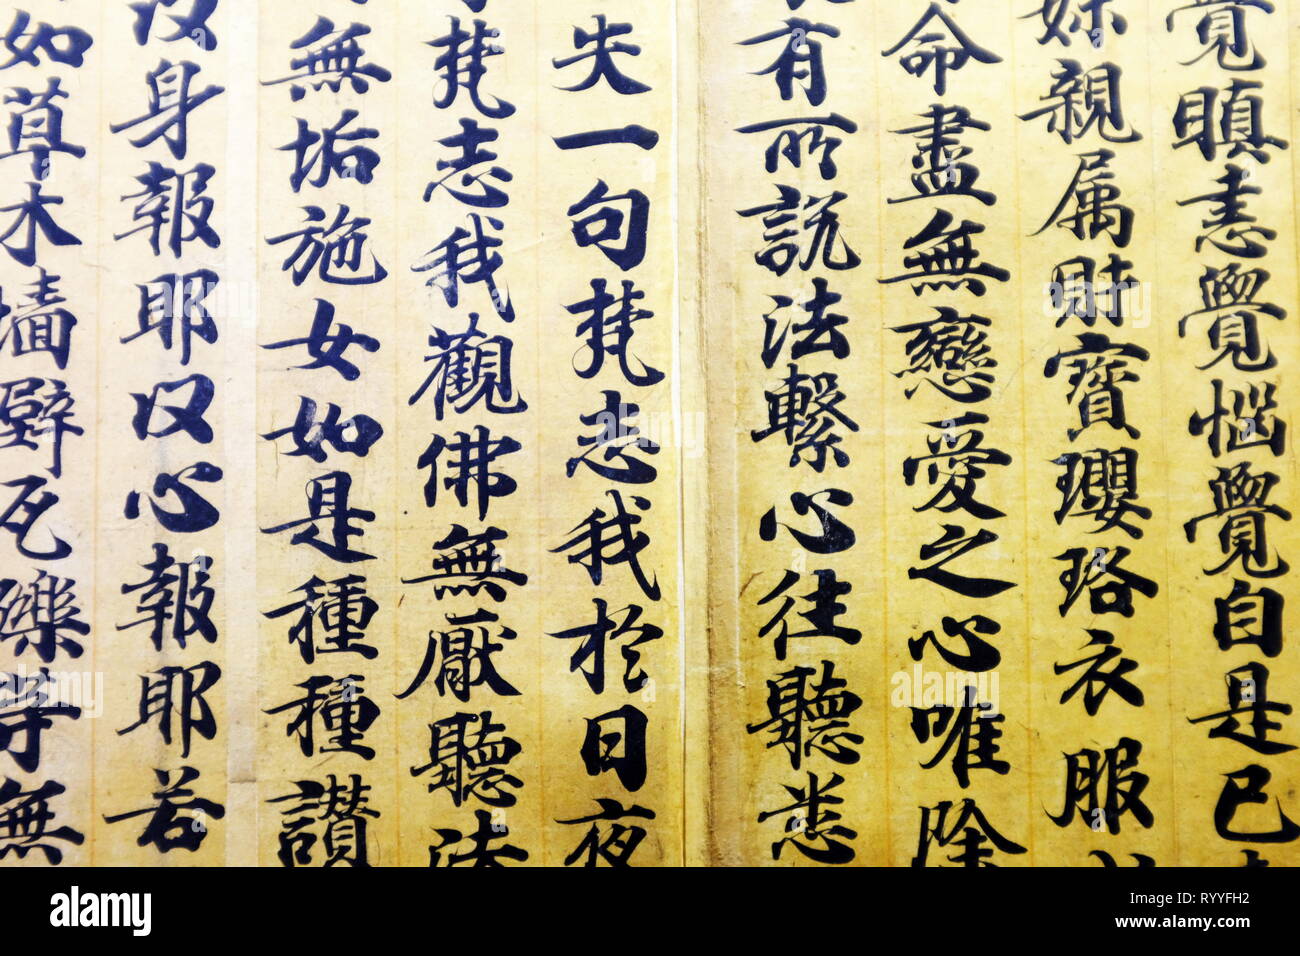 覺瞋恚覺惱覺自是已
親属財寶瓔珞衣服
命盡無戀愛之心唯除
有所說法繫心往聽悉
失一句梵志我於日夜
梵志我觀佛無厭聽法
無垢施女如是種種讃
身報耶以心報耶若
如草木墙壁瓦礫等無
alamy
Image ID: RYYFH2
www.alamy.com